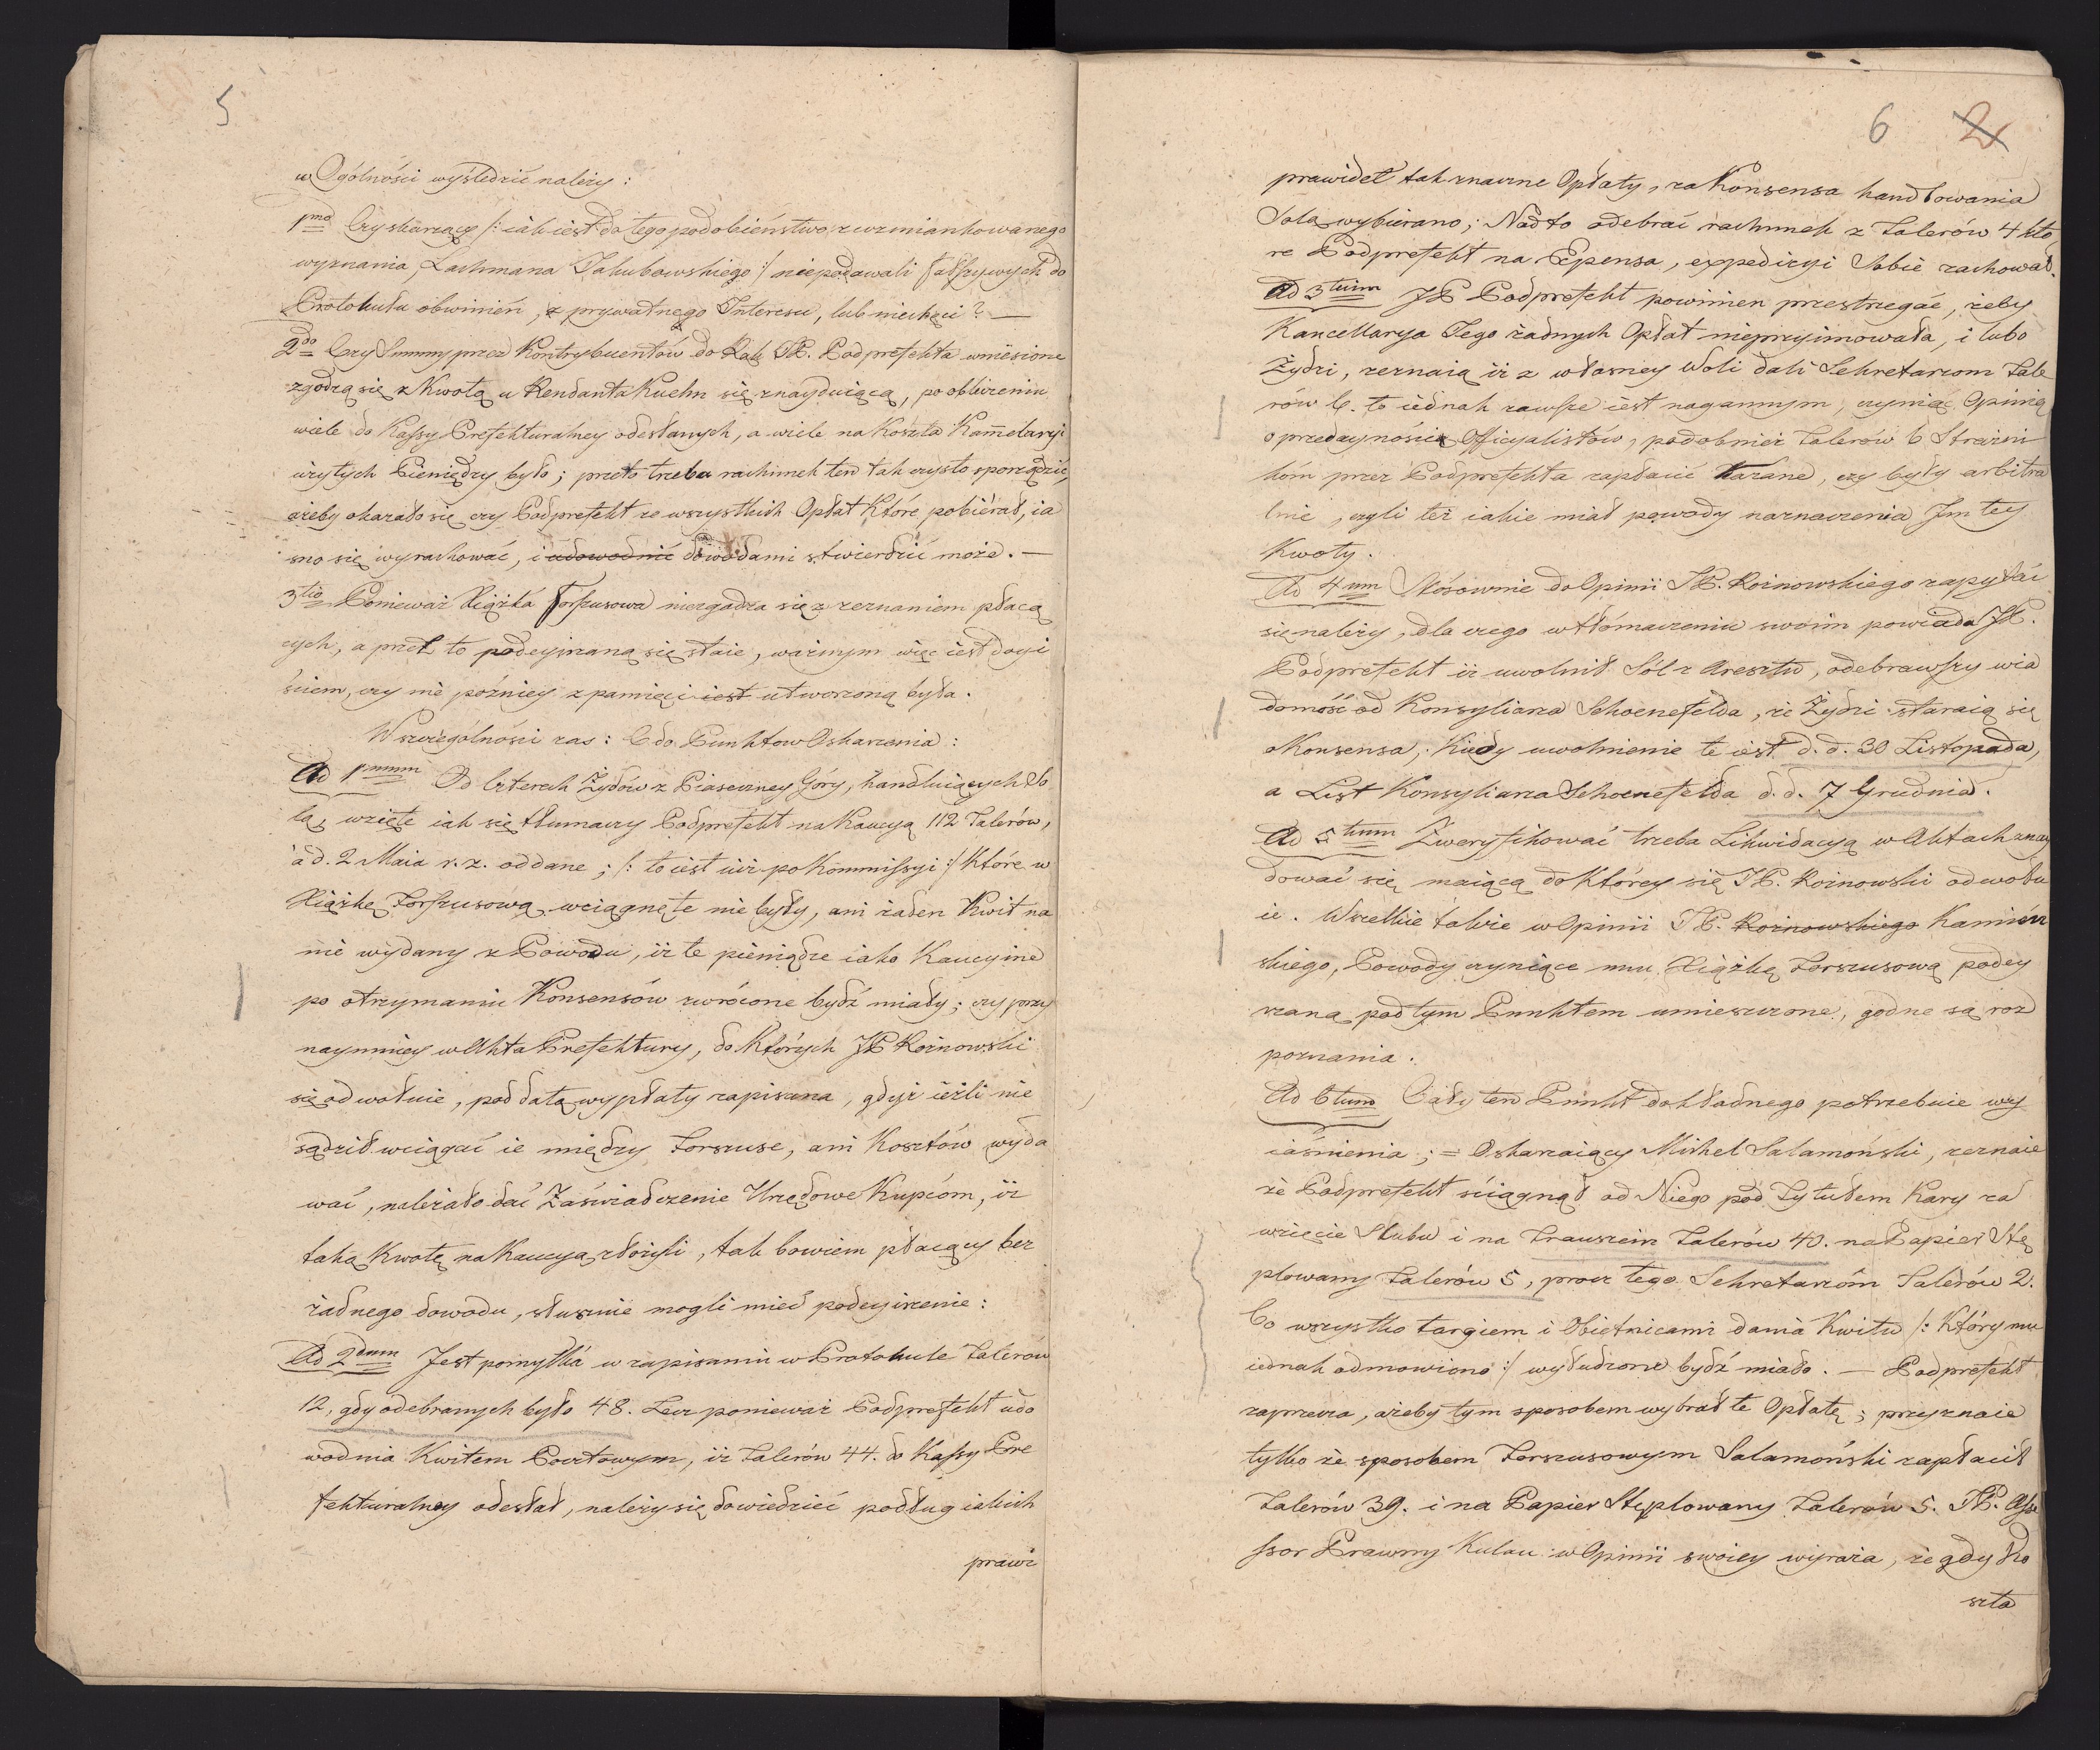 5
w Ogólności wyśledzić należy:
1mo Czy skarżący /: iak iest do tego podobieństwo z wzmiankowanego
wyznania, Lachmana Jakubowskiego :/ niepodawali fałszywych do
Protokułu obwinień, z prywatnego Interesu, lub niechęci? —
2do Czy Summy przez Kontrybuentów do Rąk JP. Podprefekta wniesione
zgodzą się z Kwotą u Rendanta Kuehn się znayduiącą, po obliczeniu
wiele do Kassy Prefekturalney odesłanych, a wiele na Koszta Kamelaryi
użytych Pieniędzy było; przeto trzeba rachunek ten tak czysto sporządzić,
ażeby okazało się czy Podprefekt ze wszystkich Opłat Które pobiérał, ia
sno się wyrachować, i udowodnić dowodami stwierdzić może. —
3tio Ponieważ Xiążka forszusowa niezgadza się z zeznaniem płacą
cych, a przez to podeyrzaną się staie, ważnym więc iest doyi
ściem, czy nie późniey z pamięci iest utworzoną była.
W szczególności zas: Co do Punktow Oskarzenia:
Ad 1mum Od czterech Żydów z Piaseczney Góry, handluiących So
lą, wzięte iak się tłumaczy Podprefekt na Kaucyą 112 Talerów,
a d. 2 Maia r. z. oddane; /: to iest iuż po Kommissyi :/ Które w
Xiążkę Forszusową wciągnęte nie były, ani żaden Kwit na
nie wydany z Powodu, iż te pieniądze iako Kaucyine
po otrzymaniu Konsensów zwrócone bydź miały; czy przy
naymniey w Akta Prefektury, do Których JP Koznowski
się odwołuie, pod datą wypłaty zapisana, gdyż ieżli nie
sądził wciągać ie między Forszuse, ani Kosztów wyda
wać, należało dać Zaświadczenie Urzędowe Kupcom, iż
taką Kwotę na Kaucyą złożyli, tak bowiem płacący bez
żadnego dowodu, słusznie mogli mieć podeyrzenie:
Ad 2dum Jest pomyłka w zapisaniu w Protokule Talerów
12, gdy odebranych było 48. Lecz ponieważ Podprefekt udo
wodnia Kwitem Pocztowym, iż Talerów 44. do Kassy Pre
fekturalney odesłał, należy się dowiedzieć podług iakich
prawi
6 2
prawideł tak znaczne Opłaty, za Konsensa handlowania
Solą wybierano; Nadto odebrać rachunek z Talerów 4 któ
re Podprefekt na Expensa, expedicyi Sobie rachował.
Ad 3tium JP Podprefekt powinien przestrzegać, żeby
Kancellarya Jego żadnych Opłat nieprzyimowała, i lubo
Żydzi, zeznaią iż z własney Woli dali Sekretarzom Tale
rów 6. to iednak zawsze iest nagannym, czyniąc Opinią
o przedayności Officyalistów, podobnież Talerów 6 Strażni
kóm przez Podprefekta zapłacić Kazane, czy były arbitra
lnie, czyli też iakie miał powody naznaczenia Im tey
Kwoty.
Ad 4um Stósownie do Opinii JP. Koznowskiego zapytać
się należy, dla czego w tłómaczeniu swoim powiada JP.
Podprefekt iż uwolnił Sól z Aresztu, odebrawszy wia
domość od Konsyliarza Schoenefelda, że Żydzi staraią się
o Konsensa; Kiedy uwolnienie te iest d. d. 30 Listopada,
a List Konsyliarza Schoenefelda d. d. 7 Grudnia.
Ad 5tum Zweryfikować trzeba Likwidacyą w Aktach znay
dować się maiącą do Którey się JP. Koznowski odwołu
ie. Wszelkie także w Opinii JP. Koznowskiego Kamień
skiego, Powody czyniące mu Xiążkę Forszusową podey
rzaną pod tym Punktem umieszczone, godne są roz
poznania.
Ad 6tum Cały ten Punkt dokładnego potrzebuie wy
iaśnienia; = Oskarzaiący Michel Salamoński, zeznaie
że Podprefekt ściągnął od Niego pod Tytułem Kary za
wzięcie Slubu i na Trauszein Talerów 40. na Papier Stę
plowany Talerów 5, procz tego Sekretarzóm Talerów 2.
Co wszystko targiem i Obietnicami dania Kwitu /: Który mu
iednak odmowiono :/ wyłudzone bydź miało. — Podprefekt
zaprzecza, ażeby tym sposobem wybrał te Opłatę; przyznaie
tylko że sposobem Forszusowym Salamoński zapłacił
Talerów 39. i na Papier Stęplowany Talerów 5. JP. Asse
ssor Prawny Kulau w Opinii swoiey wyraża, że gdy Ko
szta